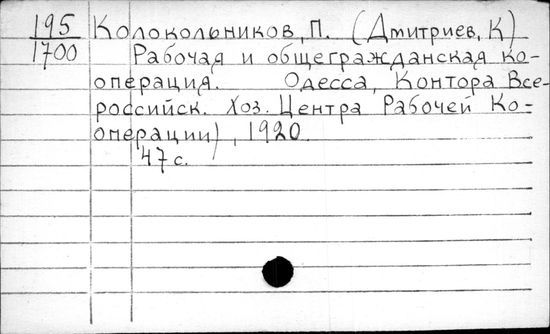 195 Колокольников, П. (Дмитриев, К)
1700 Рабочая и общегражданская ко-
операция. Одесса, Контора Все-
российск. Хоз. Центра Рабочей Ко-
операции), 1920.
47 с.